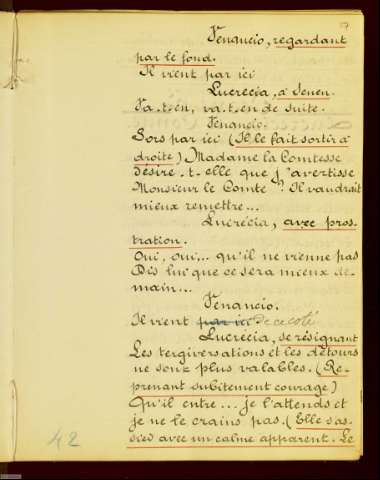 Venancio, regardant
par le fond.
Il vient par ici
Lucrecia, à Senen.
Va.t.en, va.t.en de suite.
Venancio.
Sors par ici (Il le fait sortir à
droite) Madame la Comtesse
désire.t-elle que j'avertisse
Monsieur le Comte? Il vaudrait
mieux remettre...
Lucrécia, avec pros-
tration.
Oui, oui... qu'il ne vienne pas
Dis lui que ce sera mieux de-
main...
Venancio.
Il vient par ici De ce coté
Lucrécia, se résignant
Les tergiversations et les détours
ne sont plus valables. (Re-
prenant subitement courage)
Qu'il entre... je l'attends et
je ne le crains pas. (Elle s'as-
sied avec un calme apparent. Le
42